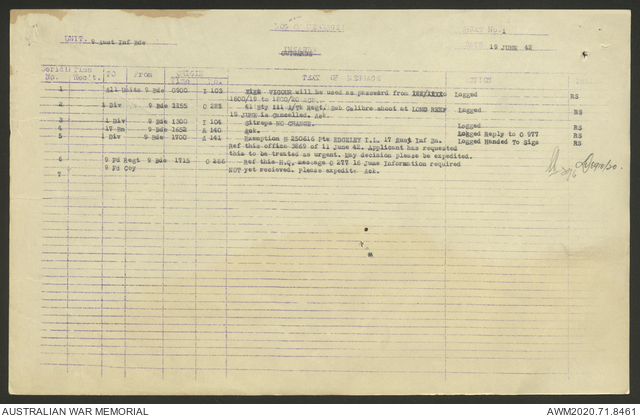 SHEET NO. 1
UNIT. 9 Aust Inf Bde
DATE 19 JUNE 42
Serial No. Time Recit. TO From ORIGIN TIME TEXT OF MESSAGE ACTION
1 All Units 9 Bde 0900 I 103 VIGOUR will be used as password from Logged RS
1800/19 to 1800/20
2 1 Div 9 Bde 1155 O 282 41 Bty 111 A/Tk Regt. Sub Calibre shoot at LONG REEF Logged RS
19 JUNE is cancelled. Ack.
3 1 Div 9 Bde 1300 I 104 Sitreps NO CHANGE. Logged RS
4 17 Bn 9 Bde 1652 A 140 Ack. Logged Reply to O 977 RS
5 1 Div 9 Bde 1700 A 141 Exemption N 250616 Pte EDGELEY I.L. 17 Aust Inf Bn. Logged Handed To Sigs RS
Ref this office 3869 of 11 June 42. Applicant has requested
this to be treated as urgent. May decision please be expedited.
6 9 Fd Regt 9 Bde 1715 O 286 Ref this H.Q. message O 277 16 June information required
9 Fd Coy NOT yet recieved. Please expedite Ack.
7
AUSTRALIAN WAR MEMORIAL
AWM2020.71.8461